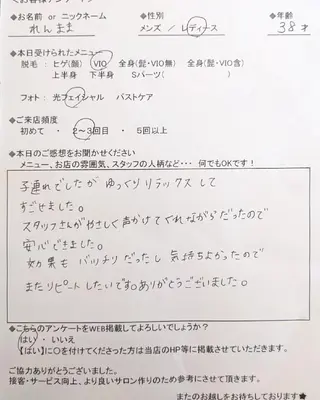 ◆お名前 or ニックネーム　◆性別　◆年齢
れんまま　メンズ / レディース　38才
◆本日受けられたメニュー
脱毛：ヒゲ(顔)　VIO　全身(髭・VIO無)　全身(髭・VIO含)
上半身　下半身　Sパーツ(　　　)
フォト：光フェイシャル　バストケア
◆ご来店頻度
初めて ・ 2～3回目 ・ 5回以上
◆本日のご感想をお聞かせください
メニュー、お店の雰囲気、スタッフの人柄など・・・ 何でもOKです！
子連れでしたが ゆっくりリラックス して
すごせました。
スタッフさんが やさしく 声かけて くれながら だったので
安心できました。
効果も バッチリ だったし 気持ちよかったので
またリピート したいです。ありがとうございました。
◆こちらのアンケートをWEB掲載してよろしいでしょうか？
はい ・ いいえ
【はい】に○を付けてくださった方は当店のHP等に掲載させていただきます。
ご協力ありがとうございました。
接客・サービス向上、より良いサロン作りのため参考にさせて頂きます。
またのお越しをお待ちしております